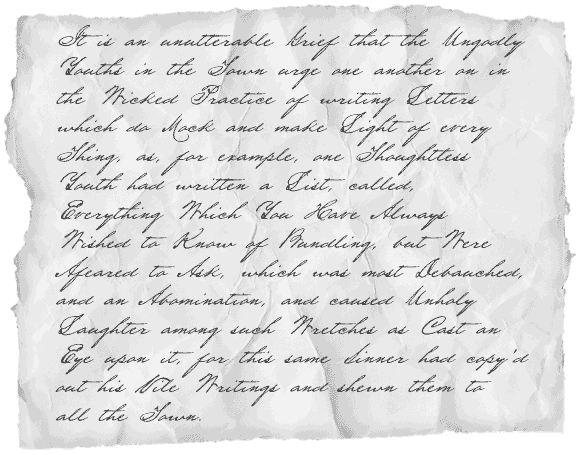 It is an unutterable Grief that the Ungodly
Youths in the Town urge one another on in
the Wicked Practice of writing Letters
which do Mock and make Light of every
Thing, as, for example, one Thoughtless
Youth had written a List, called,
Everything Which You Have Always
Wished to Know of Bundling, but Were
Afeared to Ask, which was most Debauched,
and an Abomination, and caused Unholy
Laughter among such Wretches as Cast an
Eye upon it, for this same Sinner had copy'd
out his Vile Writings and shewn them to
all the Town.